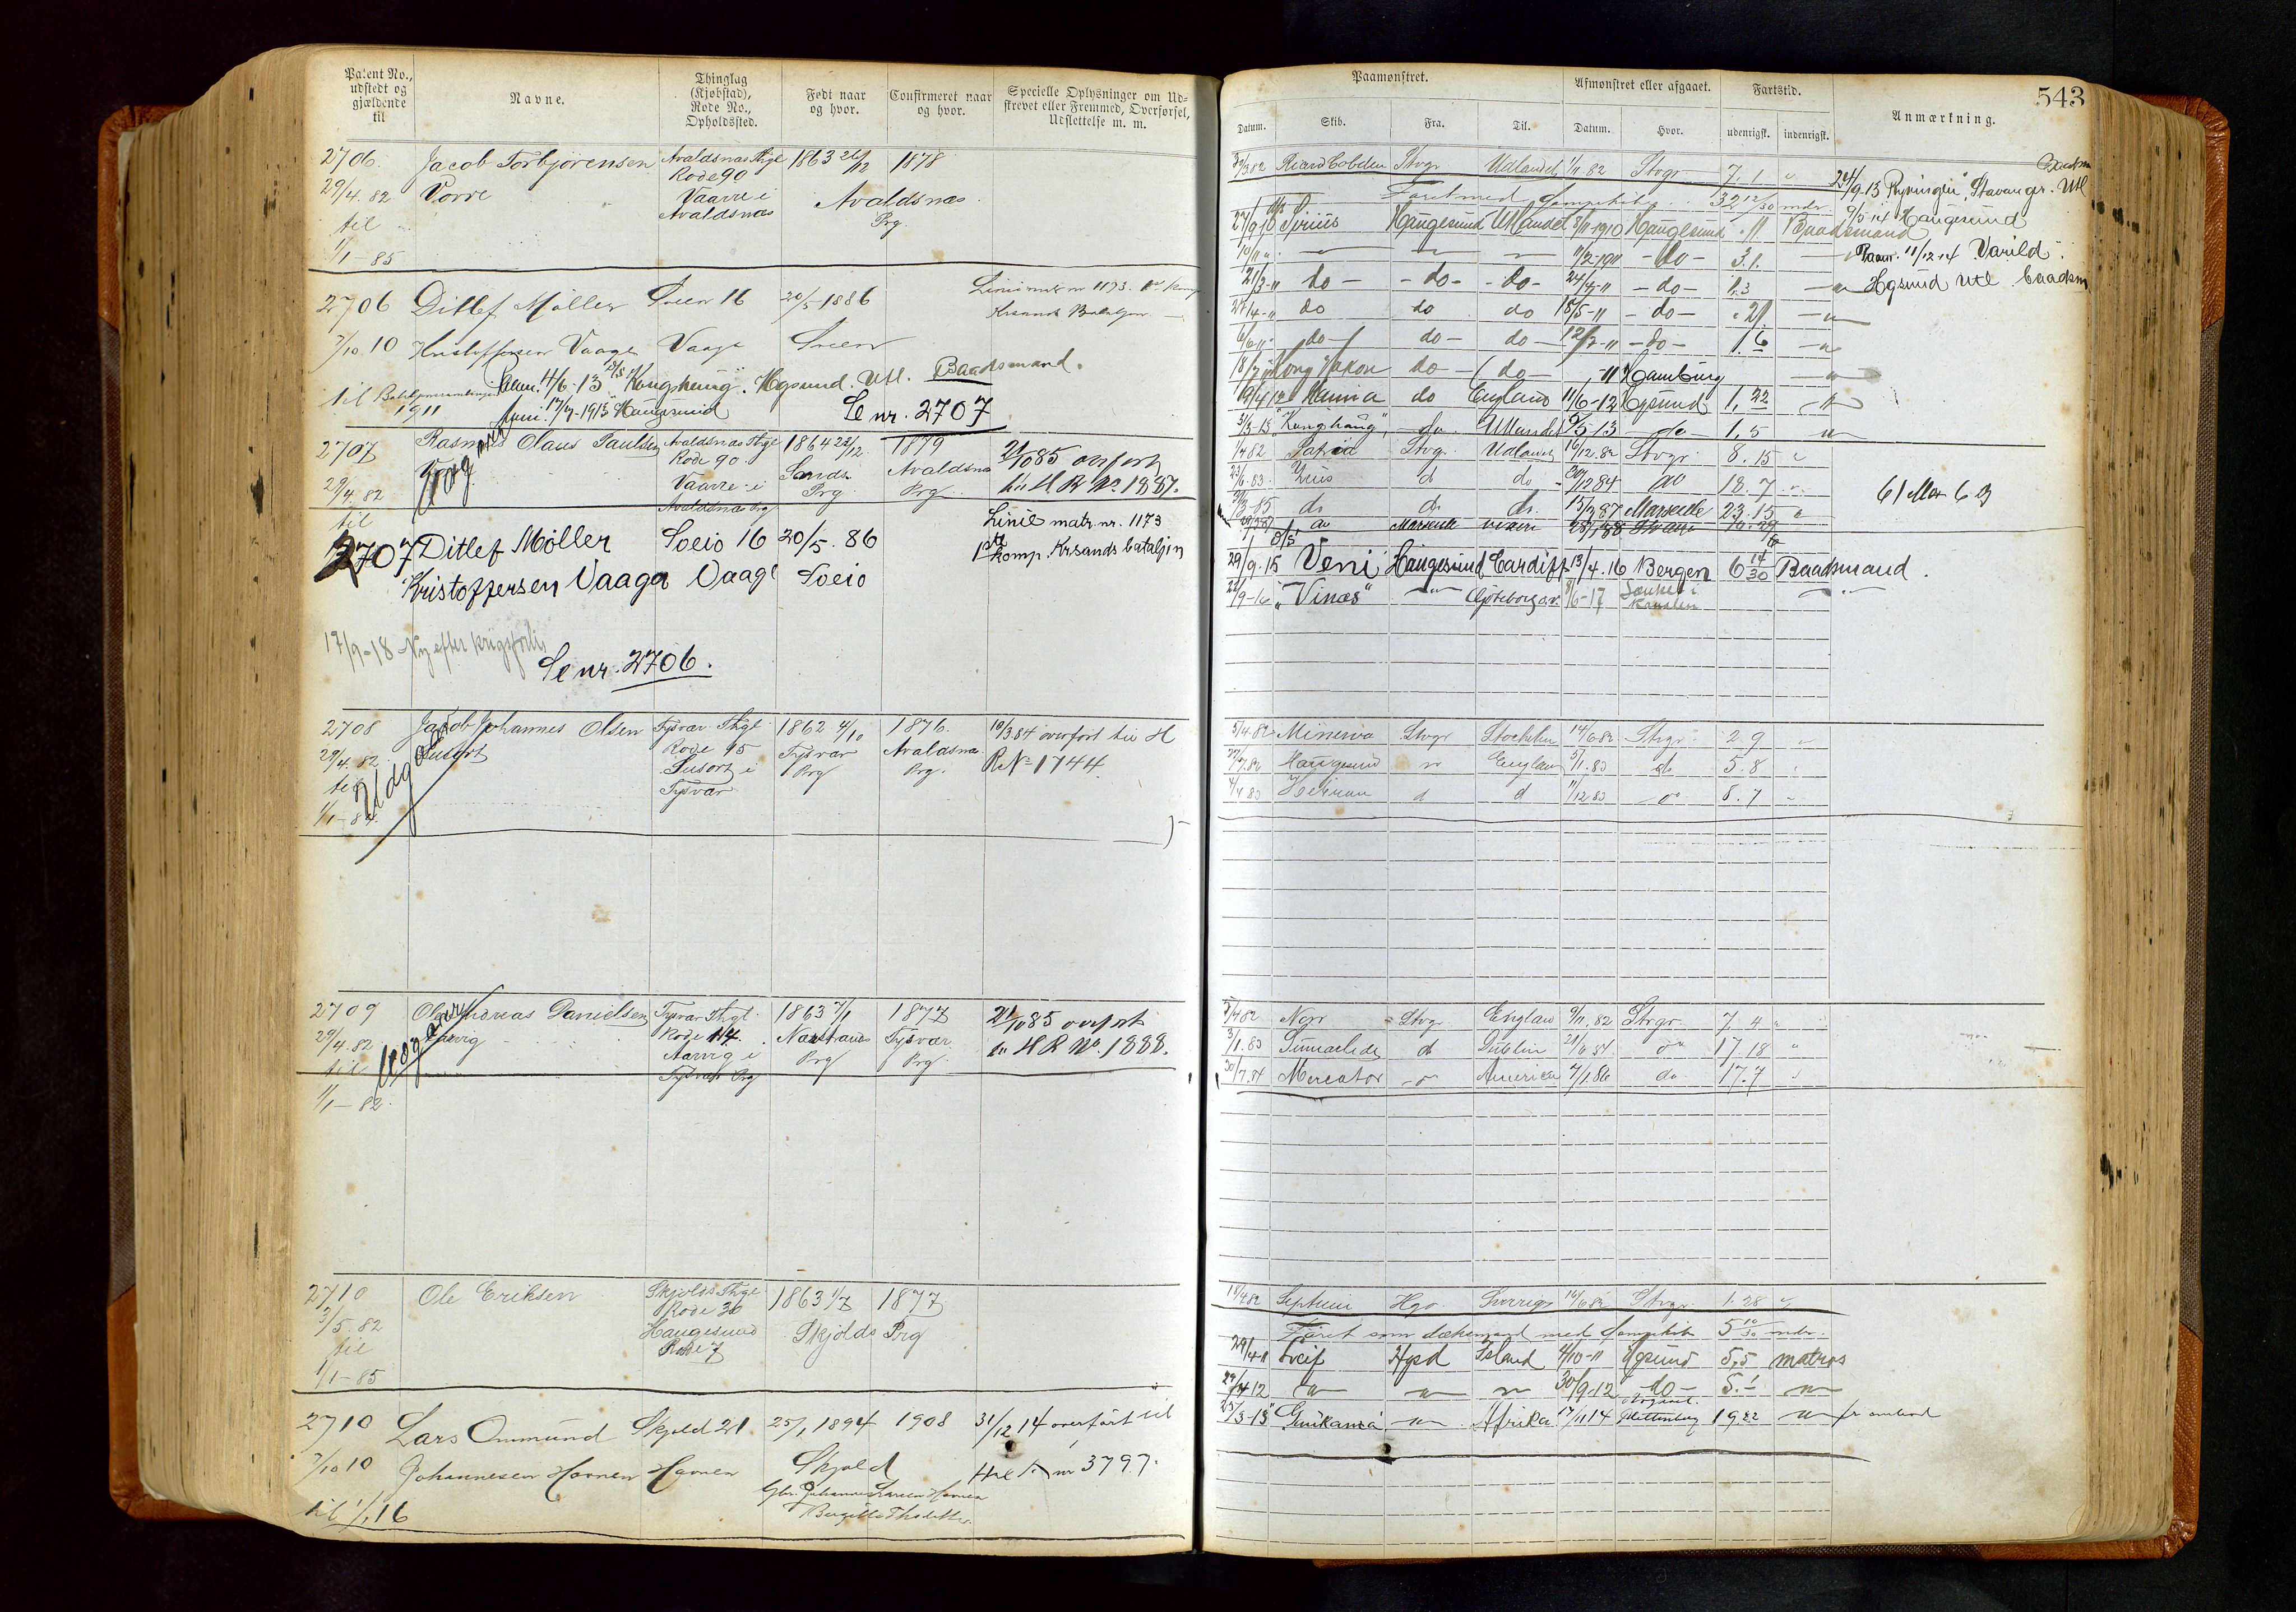 Patent No., udstedt og gjældende til
Navne.
Thinglag (Kjøbstad), Rode No., Opholdssted.
Født naar og hvor.
Confirmeret naar og hvor.
Specielle Oplysninger om Udskrevet eller Fremmed, Overførsel, Udslettelse m. m.
2706. Jacob Torbjörensen Avaldsnæs Thgl 1863 26/12 1878
Rode 90
29/4. 82 Vorre Vaarre i Avaldsnæs
til Avaldsnæs Prg.
1/1-85
2706 Ditlef Møller Soeio 16 20/5-1886 Linie matr nr 1173. Komp
Krsands Bataljon
7/10 10 Kristoffersen Vaage Vaage Soeio
til Bataljonssamlingen 4/6-13 "Kongshaug". Hgsund. Utl. Baadsmand.
1911 17/7-1913 Haugesund Se nr. 2707
2707 Rasmus Olaus Paulsen Avaldsnæs Thgl 1864 22/12 1879 21/10 85 overført
Rode 90 Sands Avaldsnæs
29/4 82 Vaarre i Prg Prg. til H R No. 1887.
til Avaldsnæs Prg
2707 Ditlef Møller Soeio 16 20/5. 86 Linie matr. nr. 1173
1ste Komp. Krsands bataljon
Kristoffersen Vaage Vaage Soeio
17/9-18 Ny efter krigsforlis
Se nr. 2706.
2708 Jacob Johannes Olsen Tysvær Thgl 1862 4/10 1876. 10/3 84 overført til H
Rode 95 Tysvær Avaldsnæs
29/4. 82. Susort Susort i Prg Prg. R No 1744.
til Udgaar Tysvær
1/1-84.
2709 Ole Andreas Danielsen Tysvær Thgl. 1863 7/1 1877 21/10 85 overført
Rode 114. Nærstrands Tysvær
29/4. 82 Aarvig Aarvig i Prg Prg. til H R No. 1888.
til Tysvær Prg
1/1-82.
2710 Ole Eriksen Skjolds Thgl 1863 1/7 1877
Rode 30
3/5. 82 Haugesund Skjolds Prg
til Rode 7
1/1-85
2710 Lars Ommund Skjold 21 25/1 1894 1908 31/12 14 overført til
7/10 10 Johannesen Hovnen Hovnen Skjold nr 3797.
til 1/1 16
Paamønstret.
Afmønstret eller afgaaet.
Fartstid.
543
Datum. Skib. Fra. Til. Datum. Hvor. udenrigsk. indenrigsk. Anmærkning.
Ricard Cobden Stvgr Udlandet 1/11 82 Stvgr 7. 1 "
24/9.13 Ryvingen", Stavanger. Utl. Baadsm
Faret med Dampskibe 32 12/30 mdr
27/9 10 Sirius Haugesund Utlandet 8/11-1910 Haugesund " 11 Baadsmand
9/5 14 Haugesund
11/2-1911 -do- 3.1.
Paam. 11/12 14 Varild.
21/3-11 do - -do- -do- 24/4-11 -do- 1,3 -"-
Hgsund Utl baadsm
27/4-11 do do do 18/5-11 - do - " 21 -"-
6/6 11- -do- do- do- 12/7-11 -do- 1.6 -"-
18/7 11 Kong Hakon do - do - -11 Hamburg -"-
19/4 12 Unnia do England 11/6-12 Hgsund 1,22 -"-
31/3-13 "Kongshaug", - do Utlandet 9/5-13 do 1,5 "
1/4 82 Patria Stvgr. Udlandet 16/12.82 Stvgr. 8. 15 "
Zeus d do 30/12 84 do 18. 7 "
85 do do do. 15/3 87 Marseille 23. 15 "
61 Mdr 6 Dg
do Marseille videre
29/9.15 Veni Haugesund Cardiff 13/4.16 Bergen 6 14/30 Baadsmand.
22/9-16 "Vinæs" -"- Gøteborg 8/6-17 Sænket i Kanalen -"-
5/4 82 Minerva Stvgr Stockholm 14/6 82 Stvgr 2 9 "
Haugesund " England 5/1. 83 do 5. 8 "
4/4 83 Heiman d d 11/12 83 - " 8. 7 "
3/4 82 Norr Stvgr England 9/11. 82 Stvgr 7. 4 "
3/1. 83 d Dublin 21/6 84 do 17. 18 "
30/7. 84 Mercator - " America 4/1.86 do 17. 7 "
Hgs. Sverrige 16/6 82 Stvgr 1. 28 "
Faret som dæksmand med Dampskibe 5 10/30 mdr.
29/4 11 Leif Hgsd Island 4/10-11 Hgsund 5,5 matros
29/4 12 -"- -"- -"- 30/9-12 -do- 5.1 -"-
25/3-13 -"- Afrika 17/11 14 19.22 -"-